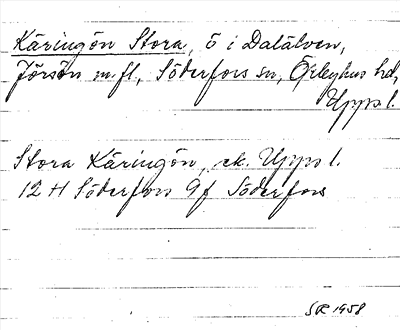 Käringön Stora, ö i Dalälven,
Jörsön m.fl., Söderfors sn, Örbyhus hd,
Upps l.
Stora Käringön, ek. Upps l.
12 H Söderfors 9f Söderfors
SR 1958